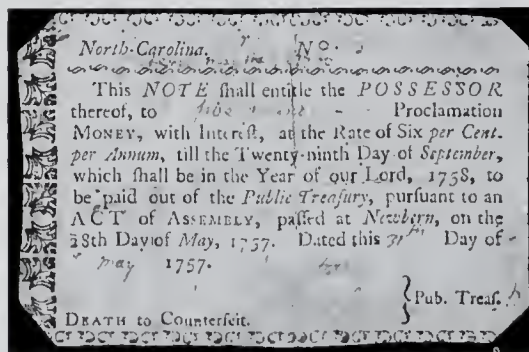 North-Carolina. No.
This NOTE ſhall entitle the POSSESSOR
thereof, to Proclamation
MONEY, with Intereſt, at the Rate of Six per Cent.
per Annum, till the Twenty-ninth Day of September,
which ſhall be in the Year of our Lord, 1758, to
be paid out of the Public Treaſury, purſuant to an
ACT of ASSEMBLY, paſſed at Newbern, on the
28th Day of May, 1757. Dated this 31st Day of
may 1757.
Pub. Treaſ.
DEATH to Counterfeit.